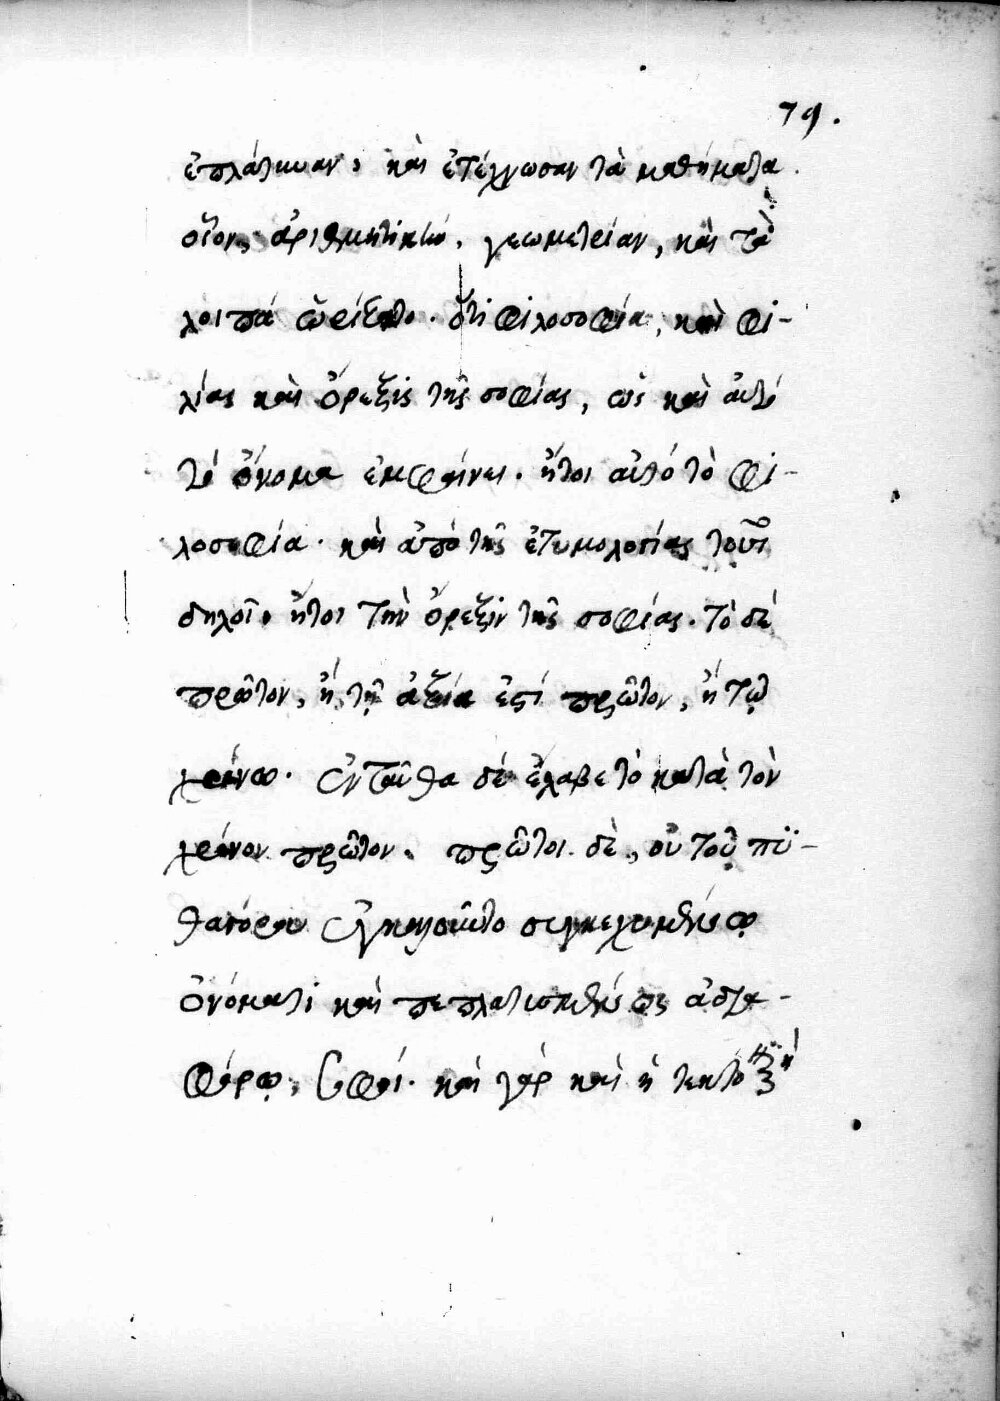 79.
ἐπλάτυναν, καὶ ἐτέχνωσαν τὰ μαθήματα
οἷον, ἀριθμητικὴν, γεωμετρίαν, καὶ τὰ
λοιπά ὡρίζετο. ὅτι φιλοσοφία, καὶ φι-
λίας καὶ ὄρεξις τῆς σοφίας, ὡς καὶ αὐτό
τό ὄνομα ἐμφαίνει. ἤτοι αὐτό τὸ φι-
λοσοφία. καὶ ἀπὸ τῆς ἐτυμολογίας τοῦτο
δηλοῖ. ἤτοι τὴν ὄρεξιν τῆς σοφίας. τὸ δέ
πρῶτον, ἢ τῇ ἀξία ἐστί πρῶτον, ἢ τῷ
χρόνω. ἐνταῦθα δέ ἔλαβε τὸ κατὰ τὸν
χρόνον πρῶτον. πρῶτοι δὲ, οὐ τοῦ πϋ-
θαγόρου συγκεχυμένῳ
ὀνόματι καὶ πεπλατυσμένως ἀδια-
φόρῳ, σοφοί. καὶ γάρ καὶ ἡ τεκτο